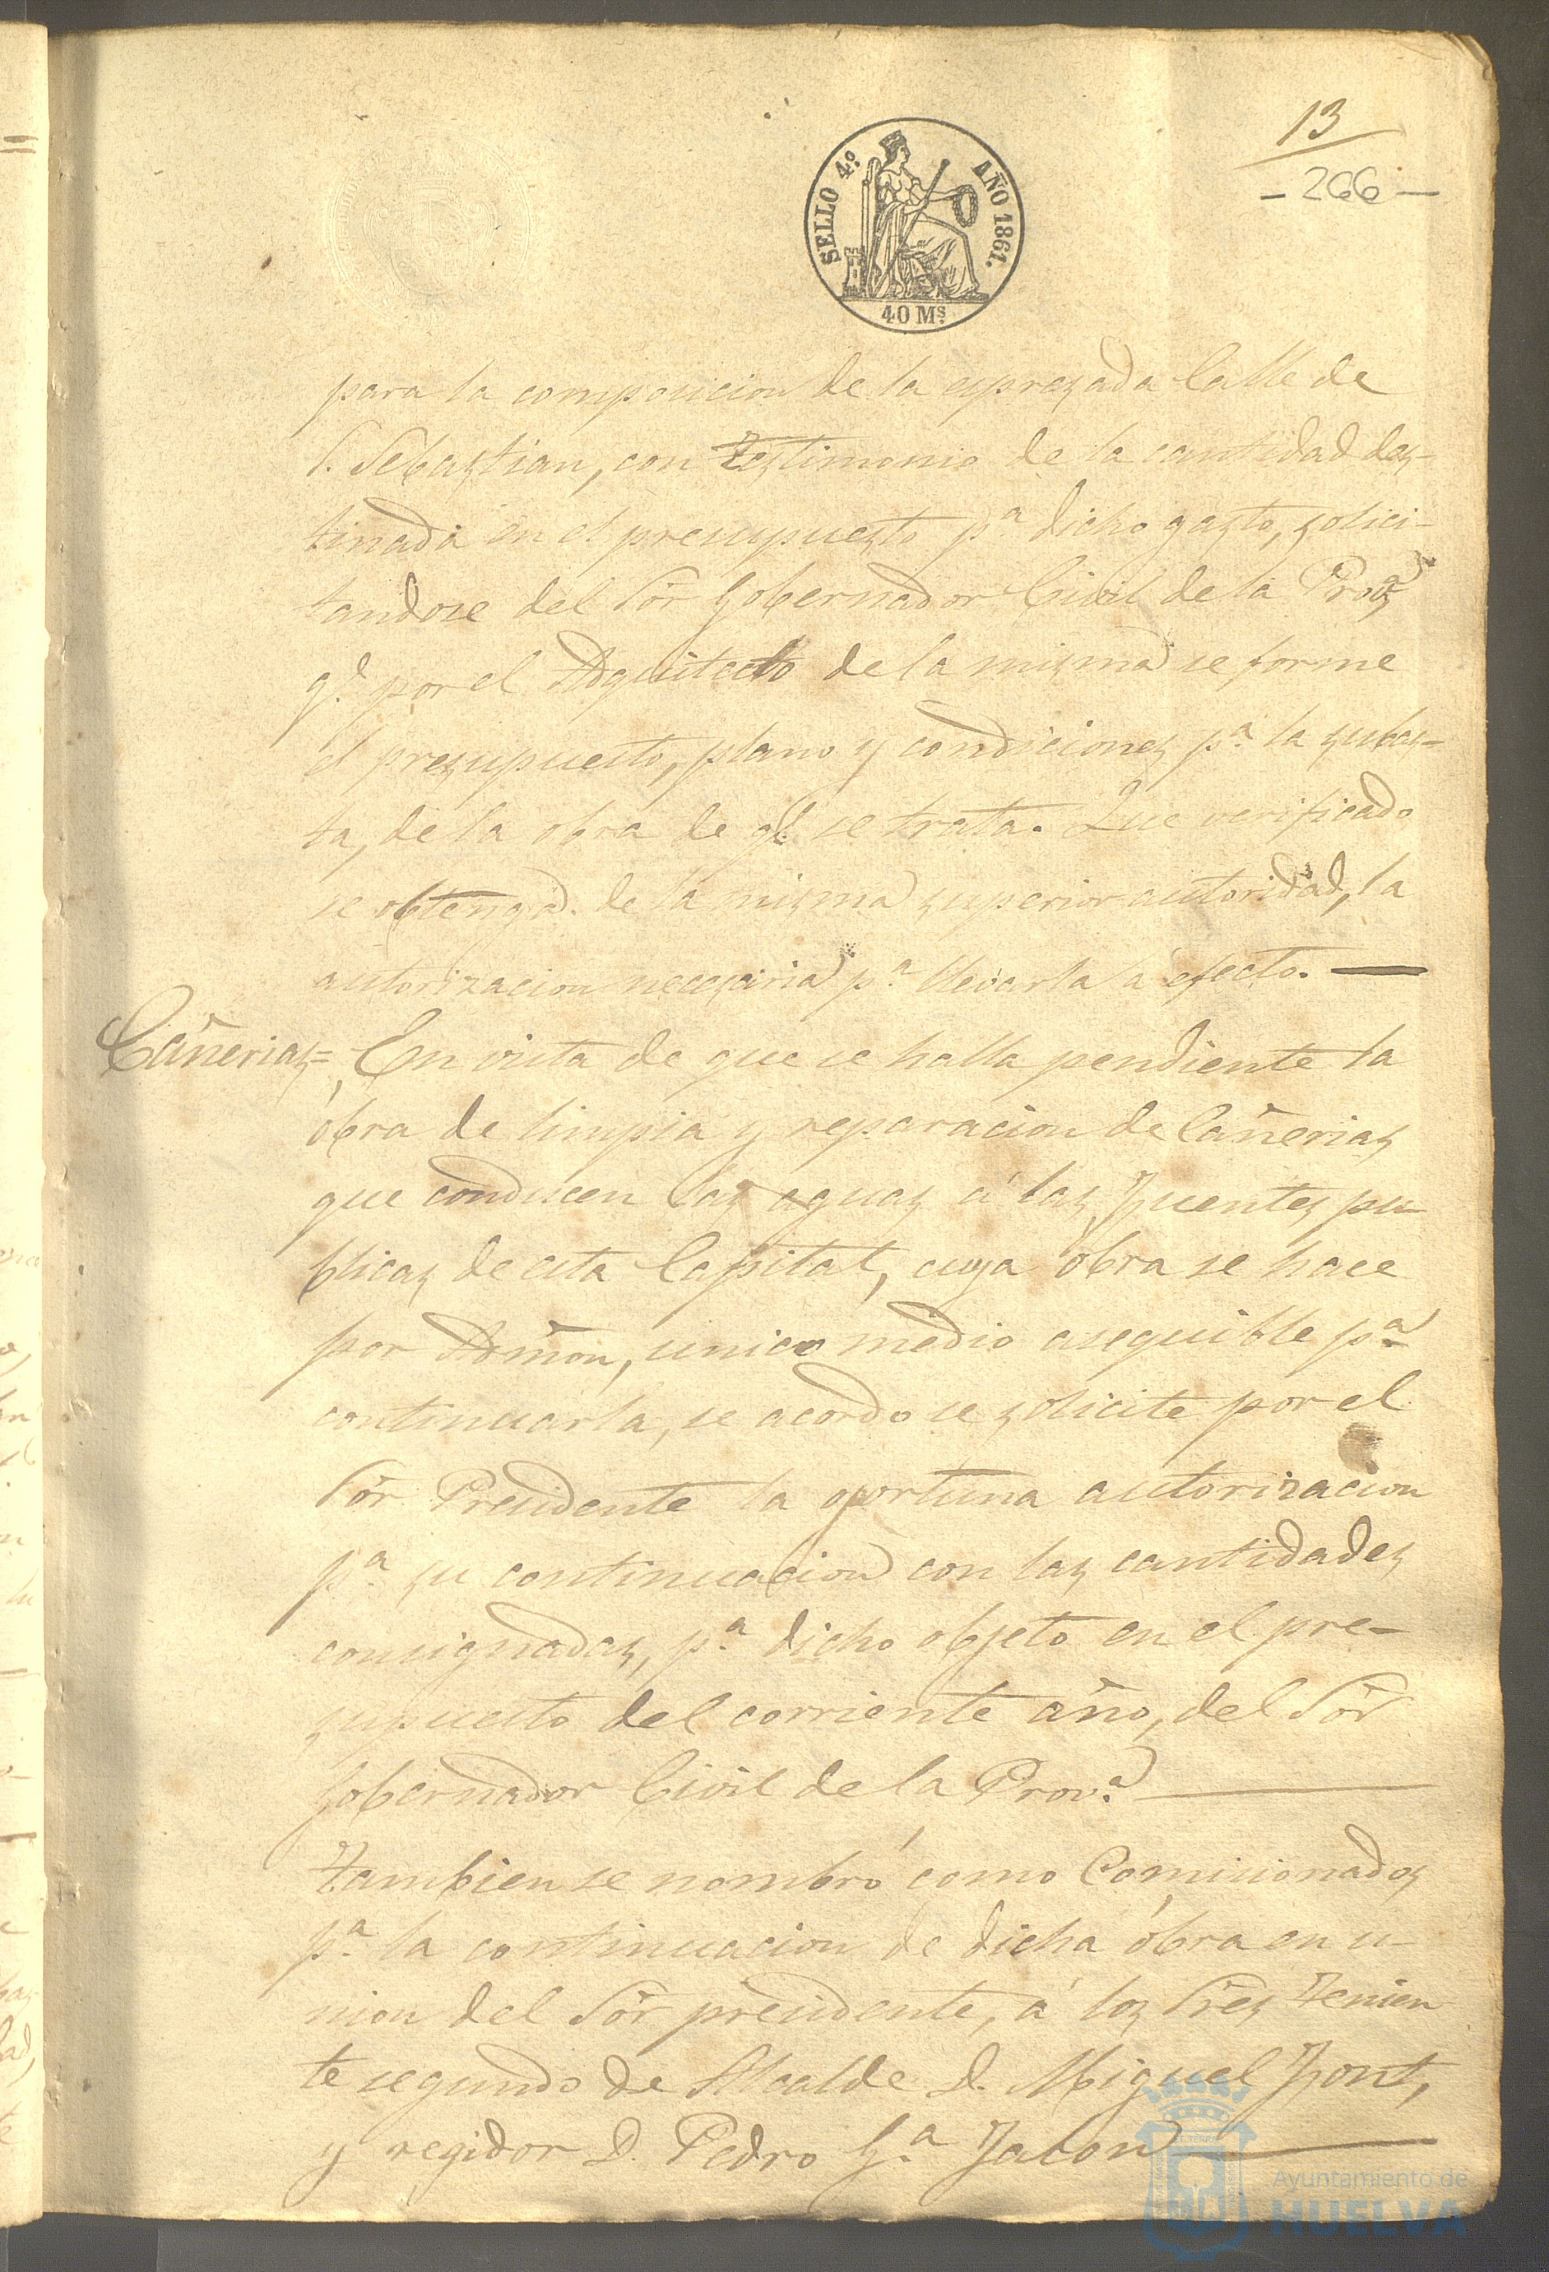 13
- 266 -
SELLO 4º AÑO 1861.
40 Ms.
para la composicion de la esprezada Calle de
S. Sebaztian, con teztimonio de la cantidad dez-
tinada en el presupuezto pª dicho gazto, zolici-
tandose del Sôr Gobernador Civil de la Provª
q.e por el Arquitecto de la mizma se forme
el prezupuesto, plano y condicionez pª la zubaz-
ta, de la obra de q.e se trata. Que verificado
se obtenga de la mizma zuperior autoridad, la
autorizacion necezaria pª llevarla á efecto. —
Cañeriaz= En vista de que se halla pendiente la
óbra de limpia y reparacion de Cañeriaz
que conducen laz aguaz á laz Fuentez pu-
blicaz de esta Capital, cuya óbra se hace
por Admôn, unico medio asequible pª
continuarla, se acordo se zolicite por el
Sôr Presidente la oportuna autorizacion
pª zu continuacion con laz cantidadez
consignadaz, pª dicho objeto en el pre-
zupuesto del corriente año, del Sôr
Gobernador Civil de la Provª —
Tambien se nombró como Comisionadoz
pª la continuacion de dicha óbra en u-
nion del Sôr presidente, á loz Srêz Tenien
te segundo de Alcalde D. Miguel Font,
y regidor D. Pedro Gª Jalon —
Ayuntamiento de
HUELVA